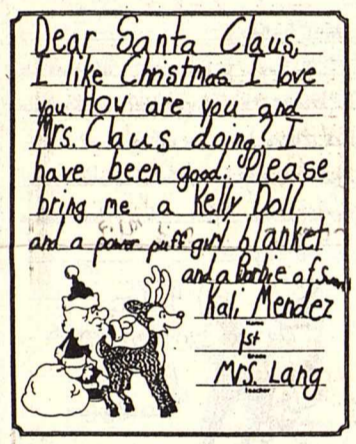 Dear Santa Claus,
I like Christmas. I love
you. How are you and
Mrs. Claus doing? I
have been good. Please
bring me a Kelly Doll
and a power puff girl blanket
and a Barbie of
Kali Mendez
Name
1st
Grade
Mrs. Lang
Teacher